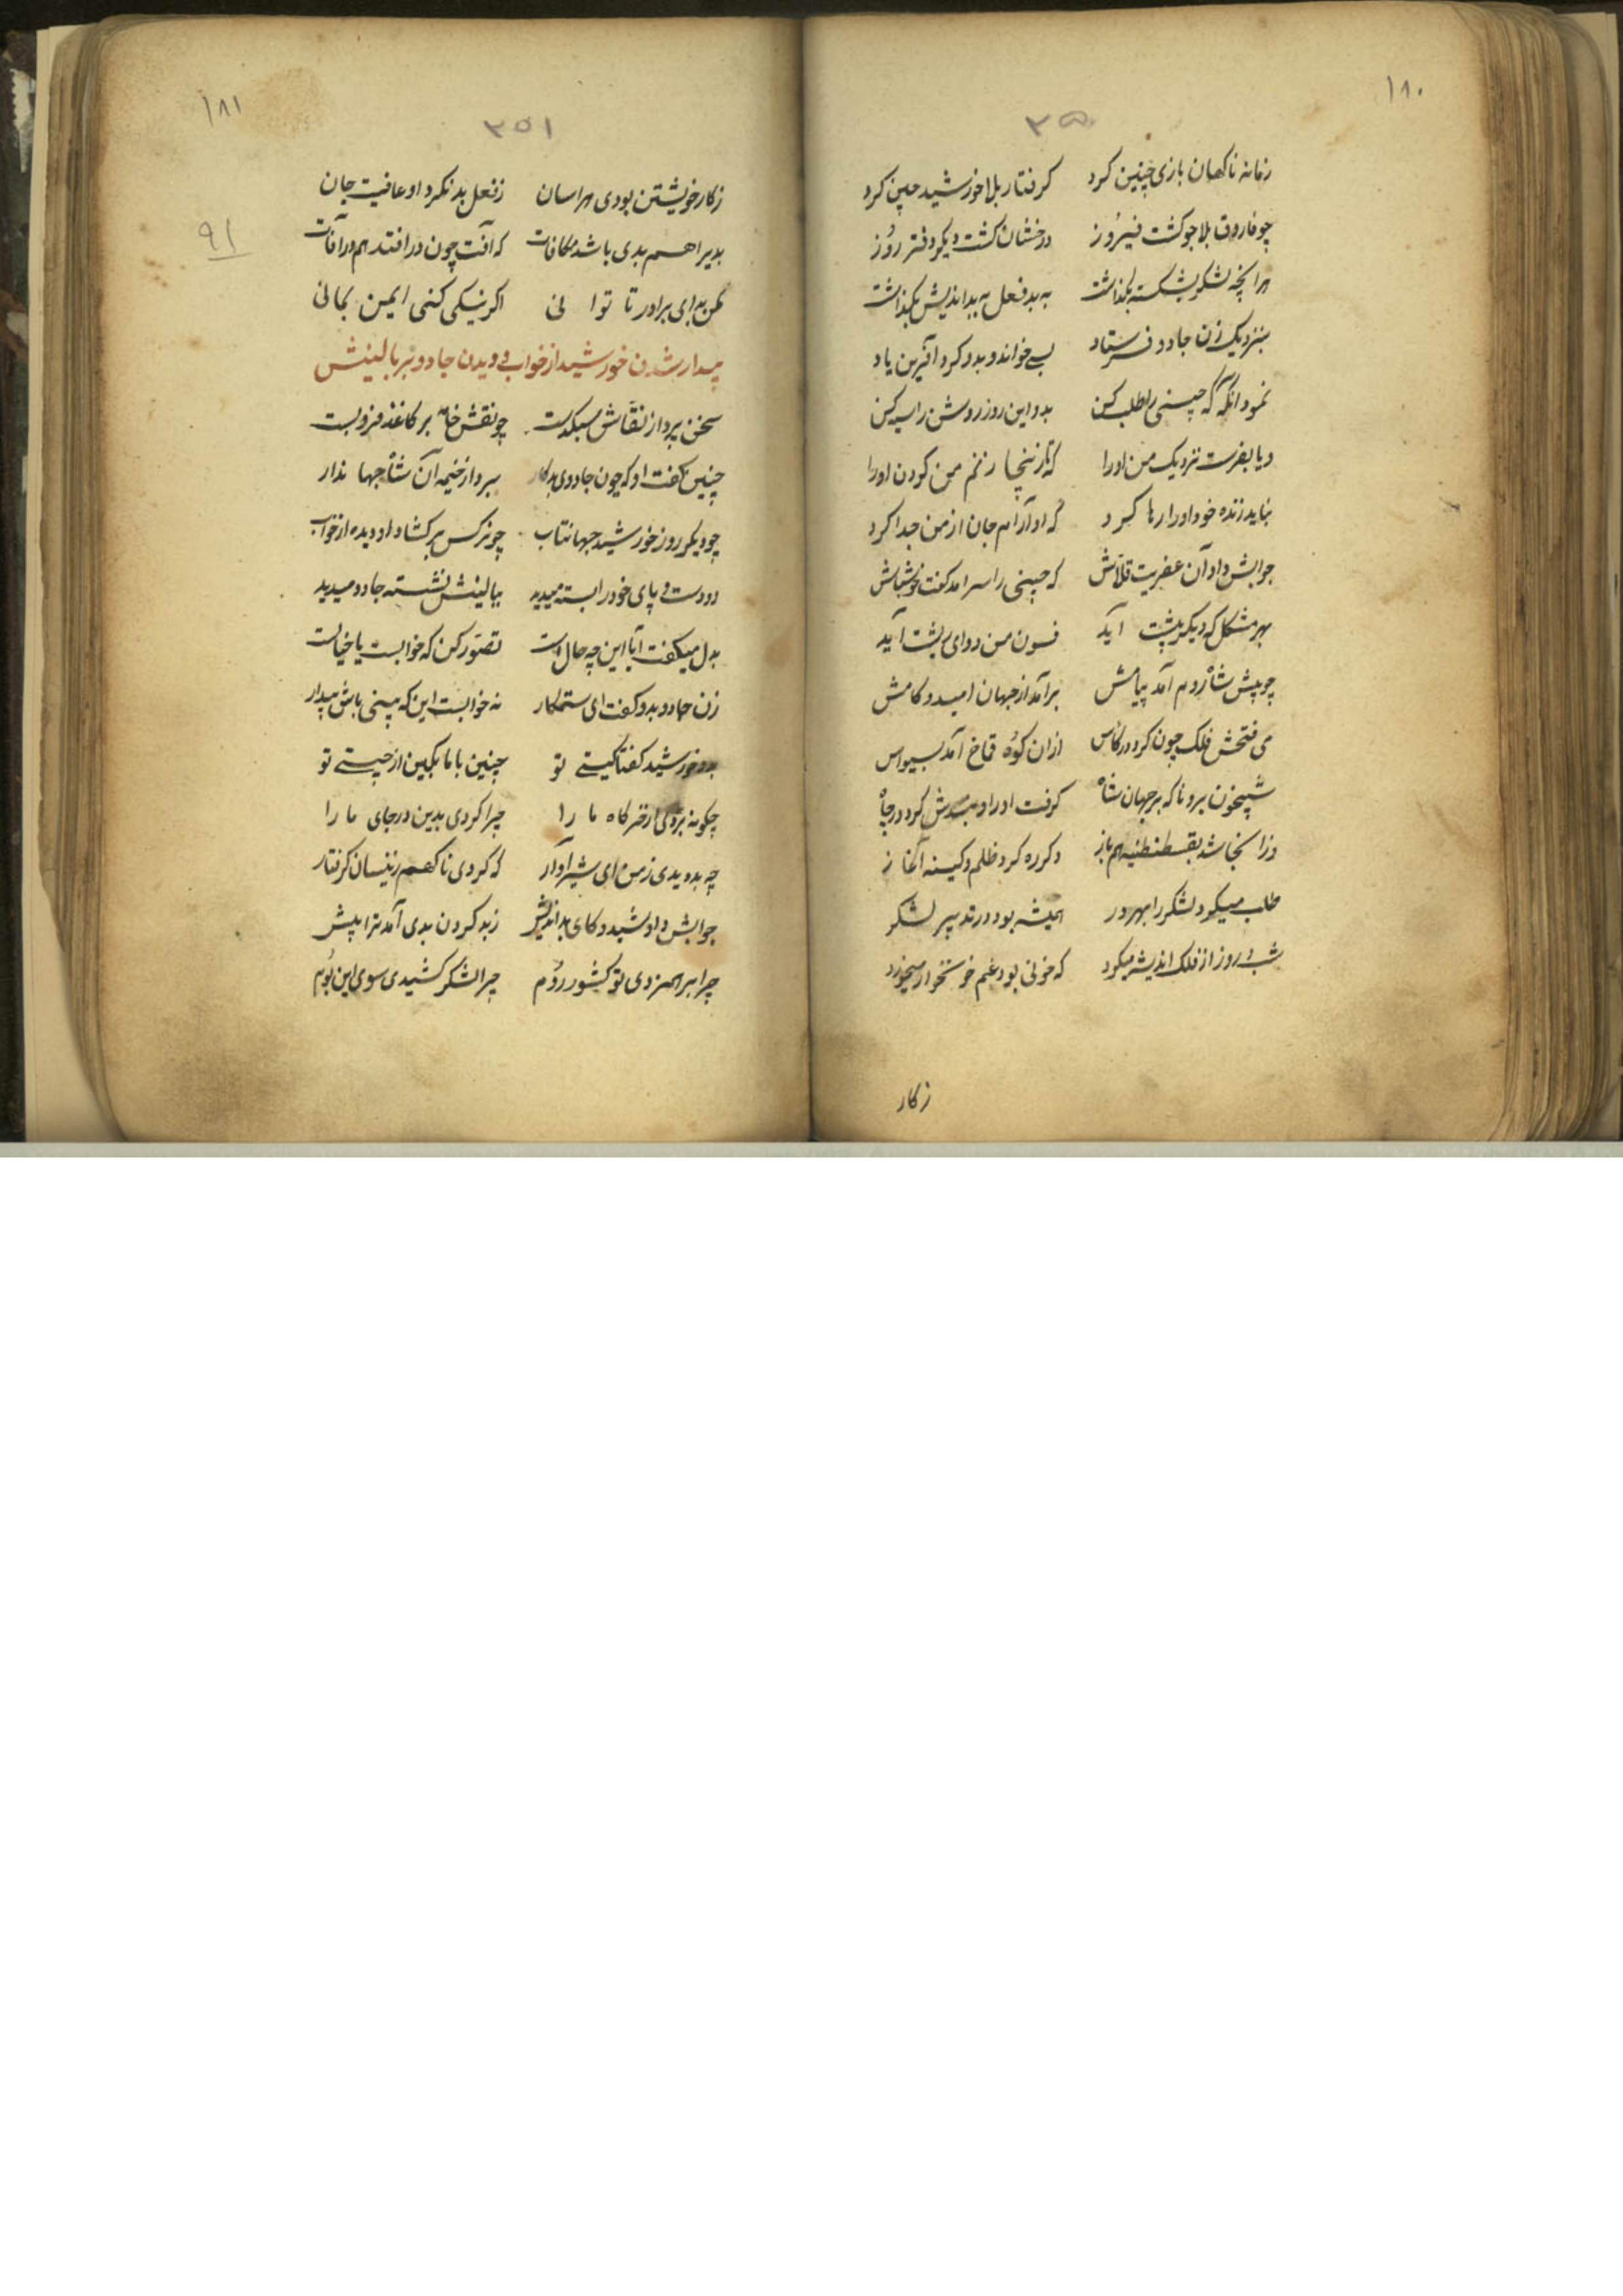 ۱۸۰
۳۵۰
زمانه ناکهان بازی چنین کرد کرفتار بلا خورشید چین کرد
چو فاروق بلاجو کشت فیروز درخشان کشت دیکر دختر روز
هرانچه لشکر بشکسته بکذاشت به بد فعل به بداندیش بکذاشت
بنزدیک زن جادو فرستاد بسی خواند و بدو کرد آفرین یاد
نمود آنکه که چینی را طلب کن بدو این روز روشن را سیه کن
و یا بفرست نزدیک من او را که تا زینجا زنم من کردن او را
نباید زنده خود او را رها کرد که او آرام جان از من جدا کرد
جوابش داد آن عفریت قلاش که چینی را سرامد کفت خوشباش
بهر مشکل که دیکر پیشت آید فسون من دوای پشت آید
چو پیش شاه روم آمد پیامش برآمد از جهان امید و کامش
می فتحش فلک چون کرد در کاس ازان کوه قماخ آمد بسیواس
شبیخون برد ناکه بر جهان شاه کرفت او را و بندش کرد در چاه
وز آنجا شد بقسطنطنیه هم باز دکرره کرد ظلم و کینه آغاز
طلب میکرد لشکر را بهر در همیشه بود در تدبیر لشکر
شب و روز از فلک اندیشه میکرد که خونی بود غم خونخوار میخورد
زکار
۱۸۱
۳۵۱
۹۱
زکار خویشتن بودی هراسان ز فعل بد نکرد او عافیت جان
بدیرا هم بدی باشد مکافات که آفت چون درافتد هم در آفات
مکن بد ای برادر تا توانی اکر نیکی کنی ایمن بمانی
بیدار شدن خورشید از خواب و دیدن جادو بر بالینش
سخن پرداز نقاش سبکدست چو نقش خامه بر کاغذ فروبست
چنین کفت او که چون جادوی بدکار ببرد از خیمه آن شاه جهاندار
چو دیکر روز خورشید جهانتاب چو نرکس برکشاد او دیده از خواب
دو دست و پای خود را بسته میدید ببالینش نشسته جادو میدید
بدل میکفت آیا این چه حال است تصور کن که خوابست یا خیالست
زن جادو بدو کفت ای ستمکار نه خوابست این که بینی باش بیدار
بدو خورشید کفتا کیستی تو چنین با ما بکین از چیستی تو
چکونه بردی از خرکاه ما را چرا کردی بدین در جای ما را
چه بد دیدی ز من ای شیرآوار که کردی ناکهم زینسان کرفتار
جوابش داد شیدو کای بداندیش ز بد کردن بدی آمد ترا پیش
چرا برهم زدی تو کشور روم چرا لشکر کشیدی سوی این بوم